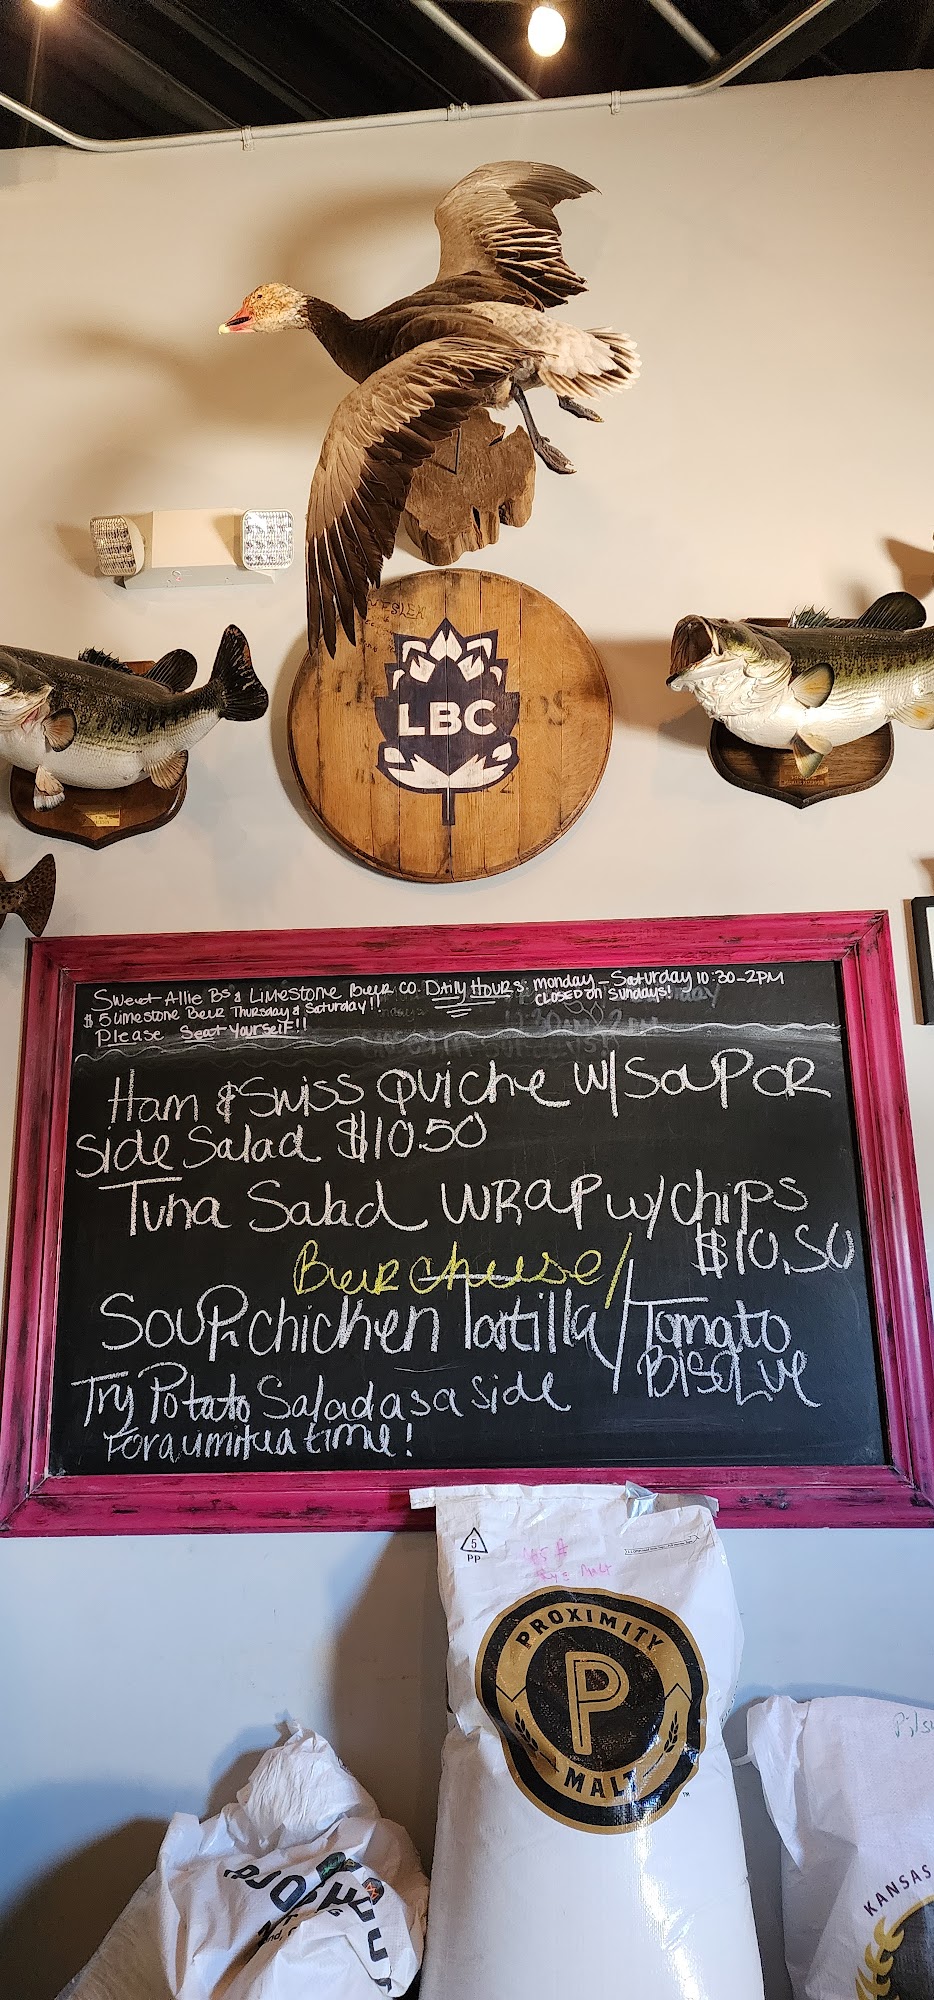 LBC
Sweet Allie B's & Limestone Beer Co. Daily Hours: monday - Saturday 10:30-2PM
CLOSED on Sundays!
$5 Limestone Beer Thursday & Saturday!!
Please Seat Yourself!!
Ham & Swiss Quiche w/Soup OR
Side Salad $10.50
Tuna Salad WRAP w/chips
$10.50
Beer cheese/
Soup: chicken Tortilla/Tomato
Bisque
Try Potato Salad as a side
For a limited time!
5
PP
Rye Malt
PROXIMITY
P
MALT
Pils
KANSAS